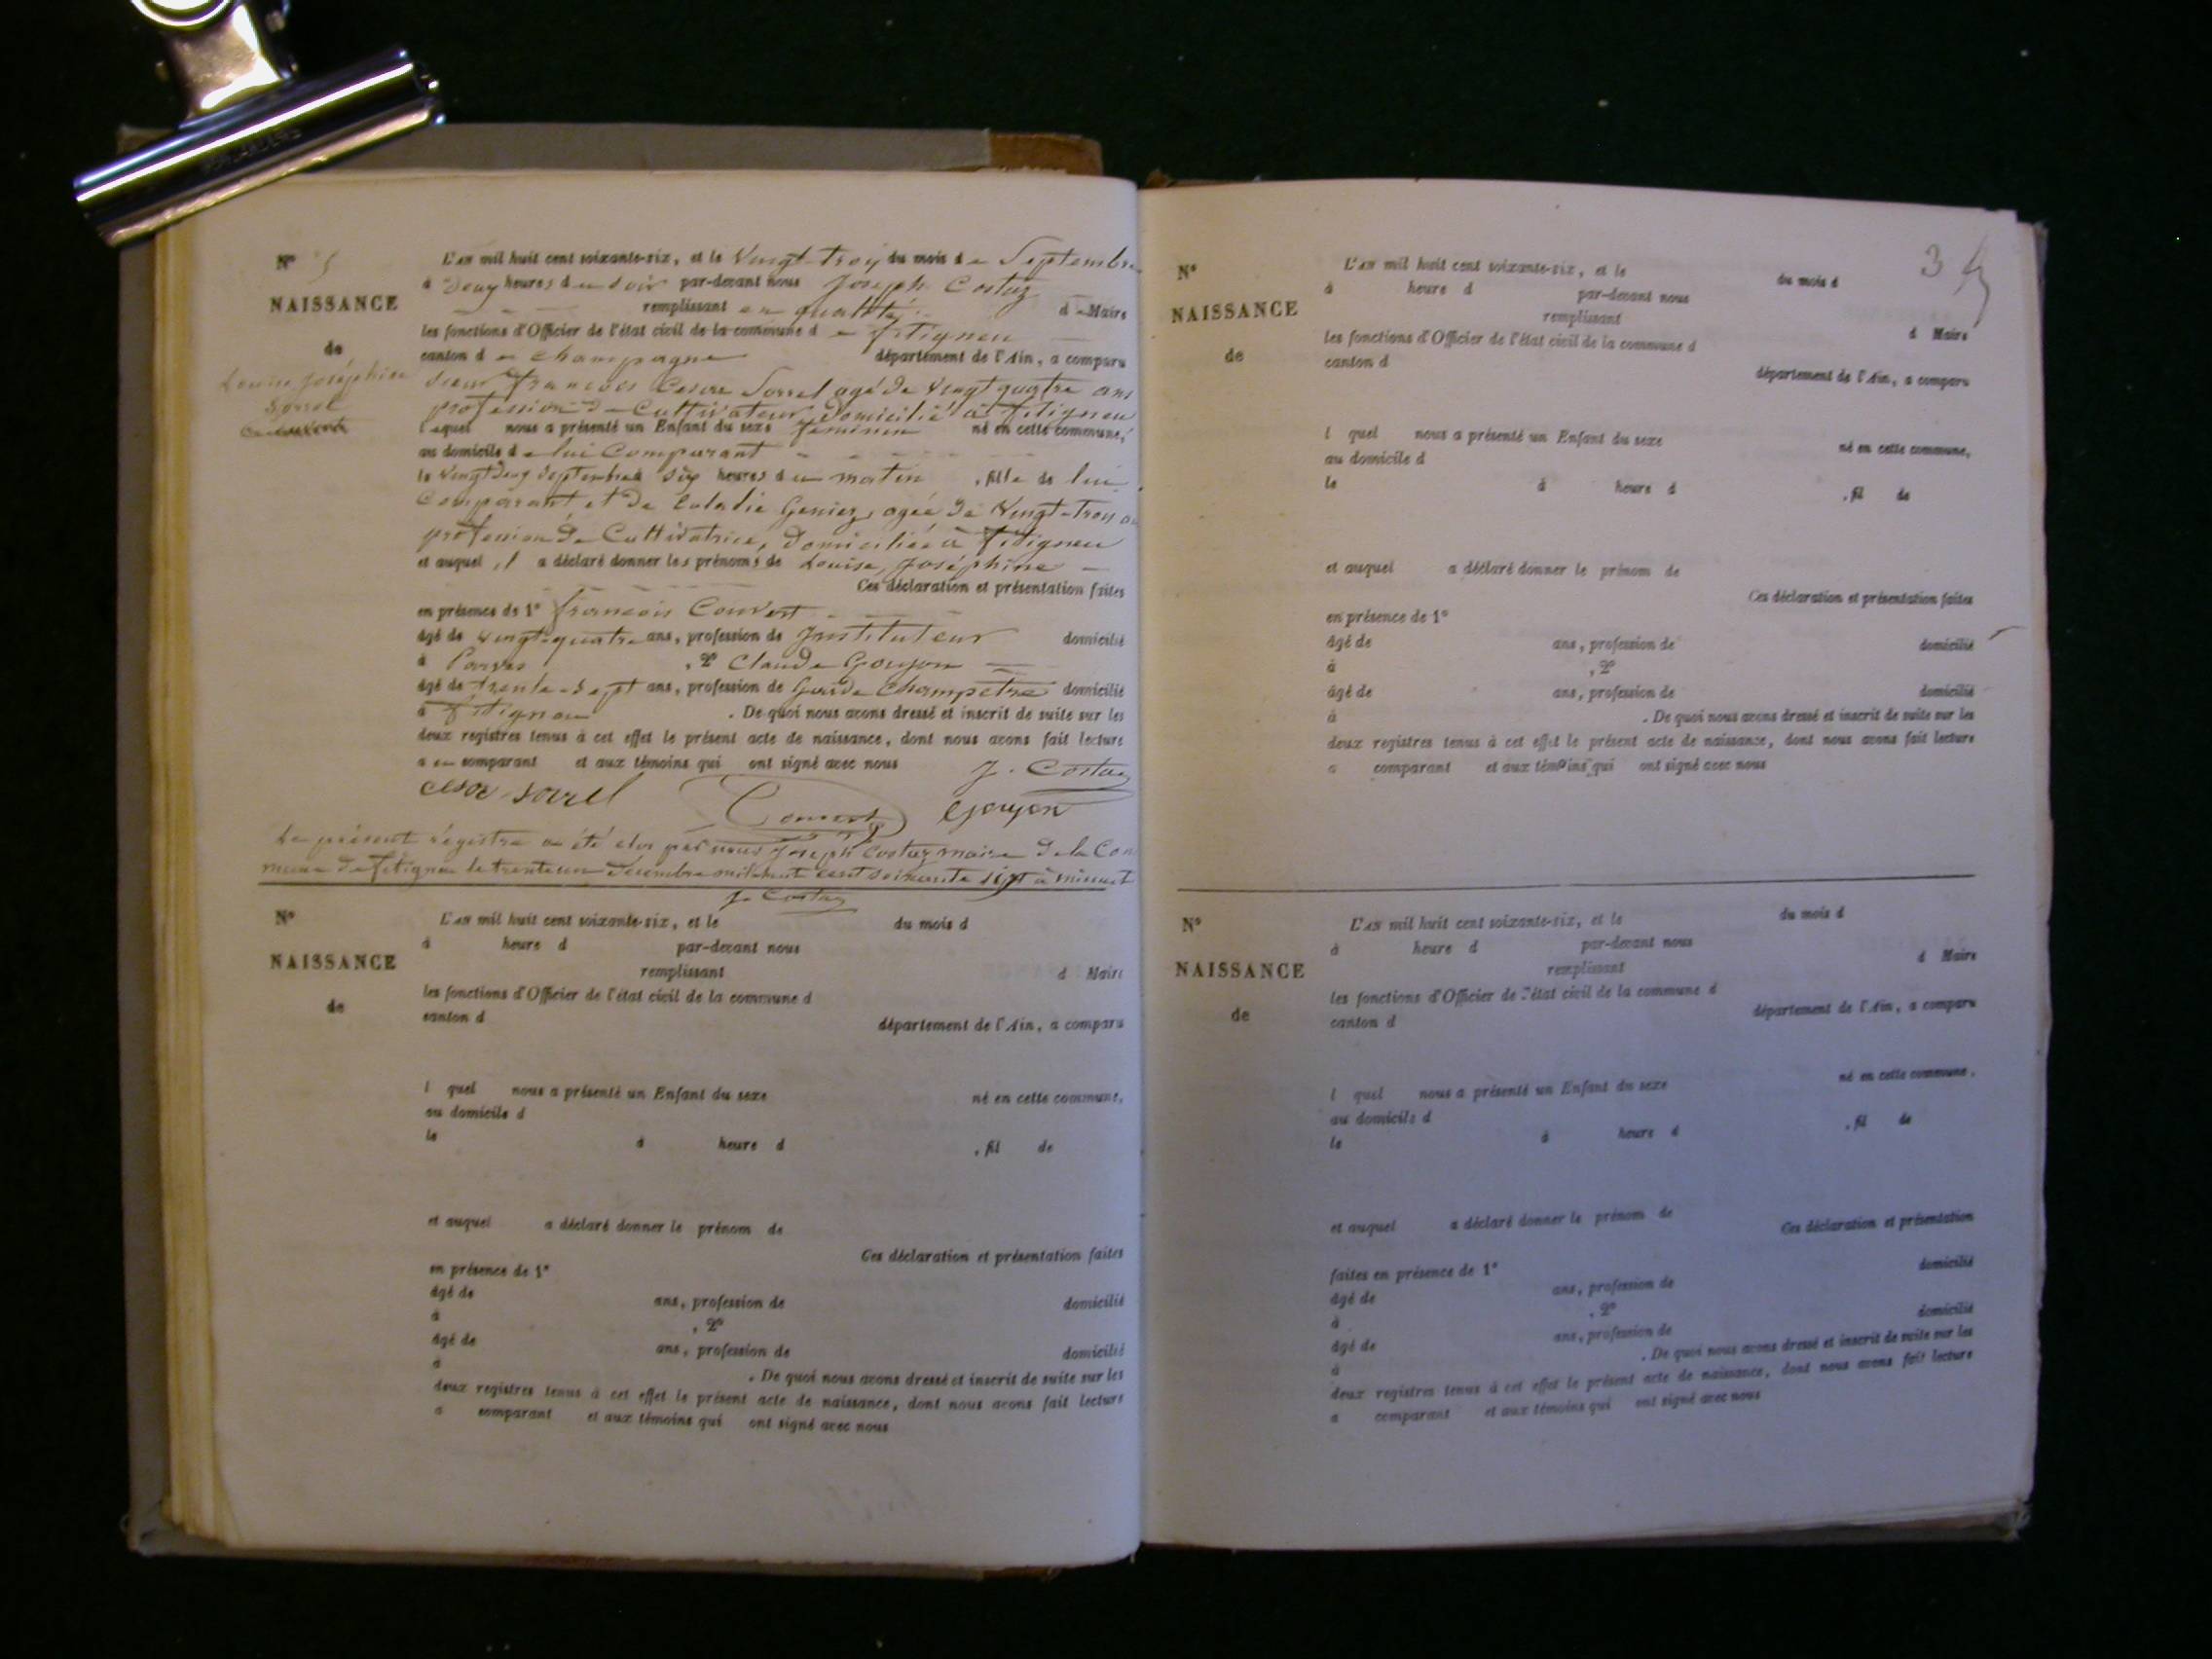 N° 5
NAISSANCE
de
Louise Joséphine
Sorrel
L'AN mil huit cent soixante-six, et le Vingt-troy du mois de Septembre
à Deuy heures du soir par-devant nous Joseph Costaz
remplissant en qualité de Maire
les fonctions d'Officier de l'état civil de la commune de fitigneu
canton de Champagne département de l'Ain, a comparu
sieur françois Cesar Sorrel agé de Vingt quatre ans
profession de Cultivateur, Domicilié à fitigneu
lequel nous a présenté un Enfant du sexe féminin né en cette commune,
au domicile de lui Comparant
le Vingt Deuy Septembre à six heures du matin , fille de lui
Comparant et de Eulalie Geniez, agée de Vingt-troy
profession de Cultivatrice, Domiciliée à fitigneu
et auquel il a déclaré donner les prénoms de Louise, Joséphine
Ces déclaration et présentation faites
en présence de 1° françois Convert
âgé de vingt-quatre ans, profession de Instituteur domicilié
à , 2° Claude Goujon
âgé de trente-sept ans, profession de Garde Champetre domicilié
à fitigneu . De quoi nous avons dressé et inscrit de suite sur les
deux registres tenus à cet effet le présent acte de naissance, dont nous avons fait lecture
au comparant et aux témoins qui ont signé avec nous J. Costaz
Cesar Sorrel Convert Goujon
Le présent régistre a été clos par nous Joseph Costaz maire de la Com
mune de fitigneu le trente un Décembre mil huit cent soixante sixt à minuit
J. Costaz
N°
NAISSANCE
de
L'AN mil huit cent soixante-six, et le du mois d
à heure d par-devant nous
remplissant d Maire
les fonctions d'Officier de l'état civil de la commune d
canton d département de l'Ain, a comparu
l quel nous a présenté un Enfant du sexe né en cette commune,
au domicile d
le à heure d , fil de
et auquel a déclaré donner le prénom de
Ces déclaration et présentation faites
en présence de 1°
âgé de ans, profession de domicilié
à , 2°
âgé de ans, profession de domicilié
à . De quoi nous avons dressé et inscrit de suite sur les
deux registres tenus à cet effet le présent acte de naissance, dont nous avons fait lecture
a comparant et aux témoins qui ont signé avec nous
3
N°
NAISSANCE
de
L'AN mil huit cent soixante-six, et le du mois d
à heure d par-devant nous
remplissant d Maire
les fonctions d'Officier de l'état civil de la commune d
canton d département de l'Ain, a comparu
l quel nous a présenté un Enfant du sexe né en cette commune,
au domicile d
le à heure d , fil de
et auquel a déclaré donner le prénom de
Ces déclaration et présentation faites
en présence de 1°
âgé de ans, profession de domicilié
à , 2°
âgé de ans, profession de domicilié
à . De quoi nous avons dressé et inscrit de suite sur les
deux registres tenus à cet effet le présent acte de naissance, dont nous avons fait lecture
a comparant et aux témoins qui ont signé avec nous
N°
NAISSANCE
de
L'AN mil huit cent soixante-six, et le du mois d
à heure d par-devant nous
remplissant d Maire
les fonctions d'Officier de l'état civil de la commune d
canton d département de l'Ain, a comparu
l quel nous a présenté un Enfant du sexe né en cette commune,
au domicile d
le à heure d , fil de
et auquel a déclaré donner le prénom de
Ces déclaration et présentation
faites en présence de 1° domicilié
âgé de ans, profession de
à , 2° domicilié
âgé de ans, profession de
à . De quoi nous avons dressé et inscrit de suite sur les
deux registres tenus à cet effet le présent acte de naissance, dont nous avons fait lecture
a comparant et aux témoins qui ont signé avec nous